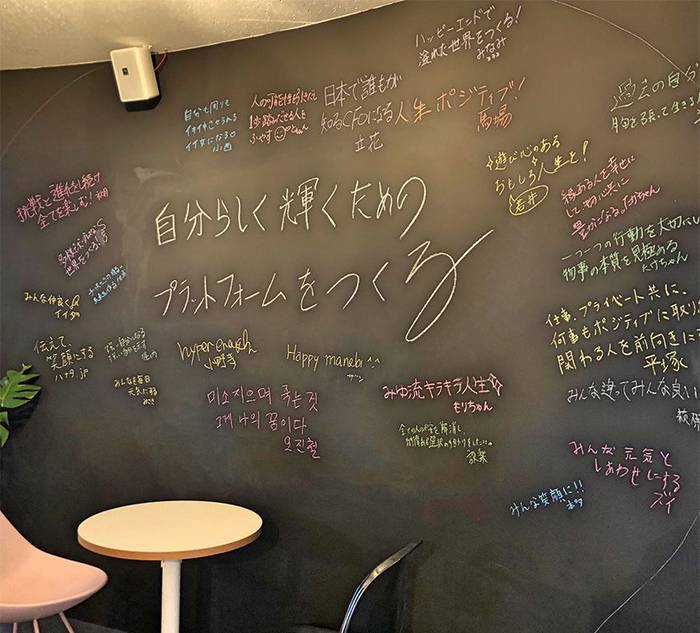 ハッピーエンドで
溢れた世界をつくる!
みなみ
日本で誰もが
知るCFOになる
立花
人生ポジティブ!
馬場
自分も周りも
イキイキさせられる
イイ女になる
小西
人の可能性を信じて
1歩踏みだせる人を
ふやす
過去の自分
胸を張って生きる
遊び心のある
おもしろ人生を!
若井
縁ある人を幸せに
して、心共に
豊かになる。
挑戦と進化し続け
全てを楽しむ!
自分らしく輝くための
プラットフォームをつくる
一つ一つの行動を大切にし
物事の本質を見極める
たけちゃん
世界をつくる
みんな仲良く
イイダ
仕事、プライベート共に、
何事もポジティブに取り
関わる人を前向きに
平塚
伝えて、
笑顔にする
ハナ9.jp
みんなを毎日
元気にする
hyper enough
小野寺
Happy manabi ^^
미소지으며 죽는것
그게 나의 꿈이다
오진철
みゆ流キラキラ人生☆
もりちゃん
みんな違ってみんな良い
萩原
みんな元気と
しあわせにする
ズイ
みんな笑顔に!!